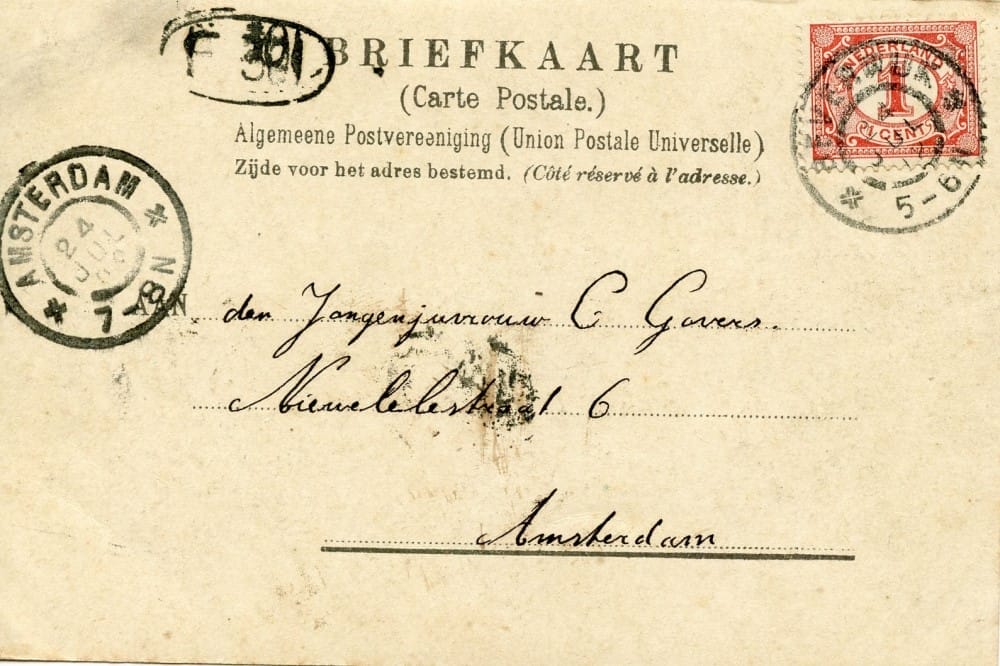 BRIEFKAART
(Carte Postale.)
Algemeene Postvereeniging (Union Postale Universelle)
Zijde voor het adres bestemd. (Côté réservé à l'adresse.)
NEDERLAND
1
CENT
5-6
AMSTERDAM
24
JUL
7-8N
AAN
den Jongenjuvrouw C Govers.
Nieuwelelestraat 6
Amsterdam